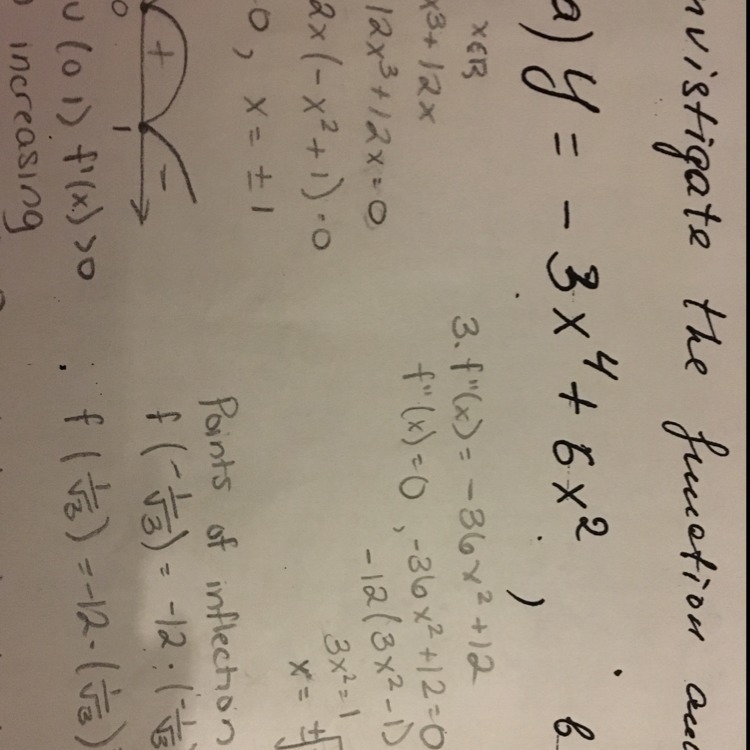 nvistigate the function and
a) y = -3x⁴ + 6x² ,
x∈R
x³+12x
12x³+12x=0
2x(-x²+1)=0
0, x = ±1
0 + 1 -
∪(0 1) f'(x)>0
increasing
3. f''(x) = -36x²+12
f''(x)=0, -36x²+12=0
-12(3x²-1)
3x²=1
x = ±√
Points of inflection
f(-1/√3) = -12·(-1/√3)
f(1/√3) = -12·(1/√3)